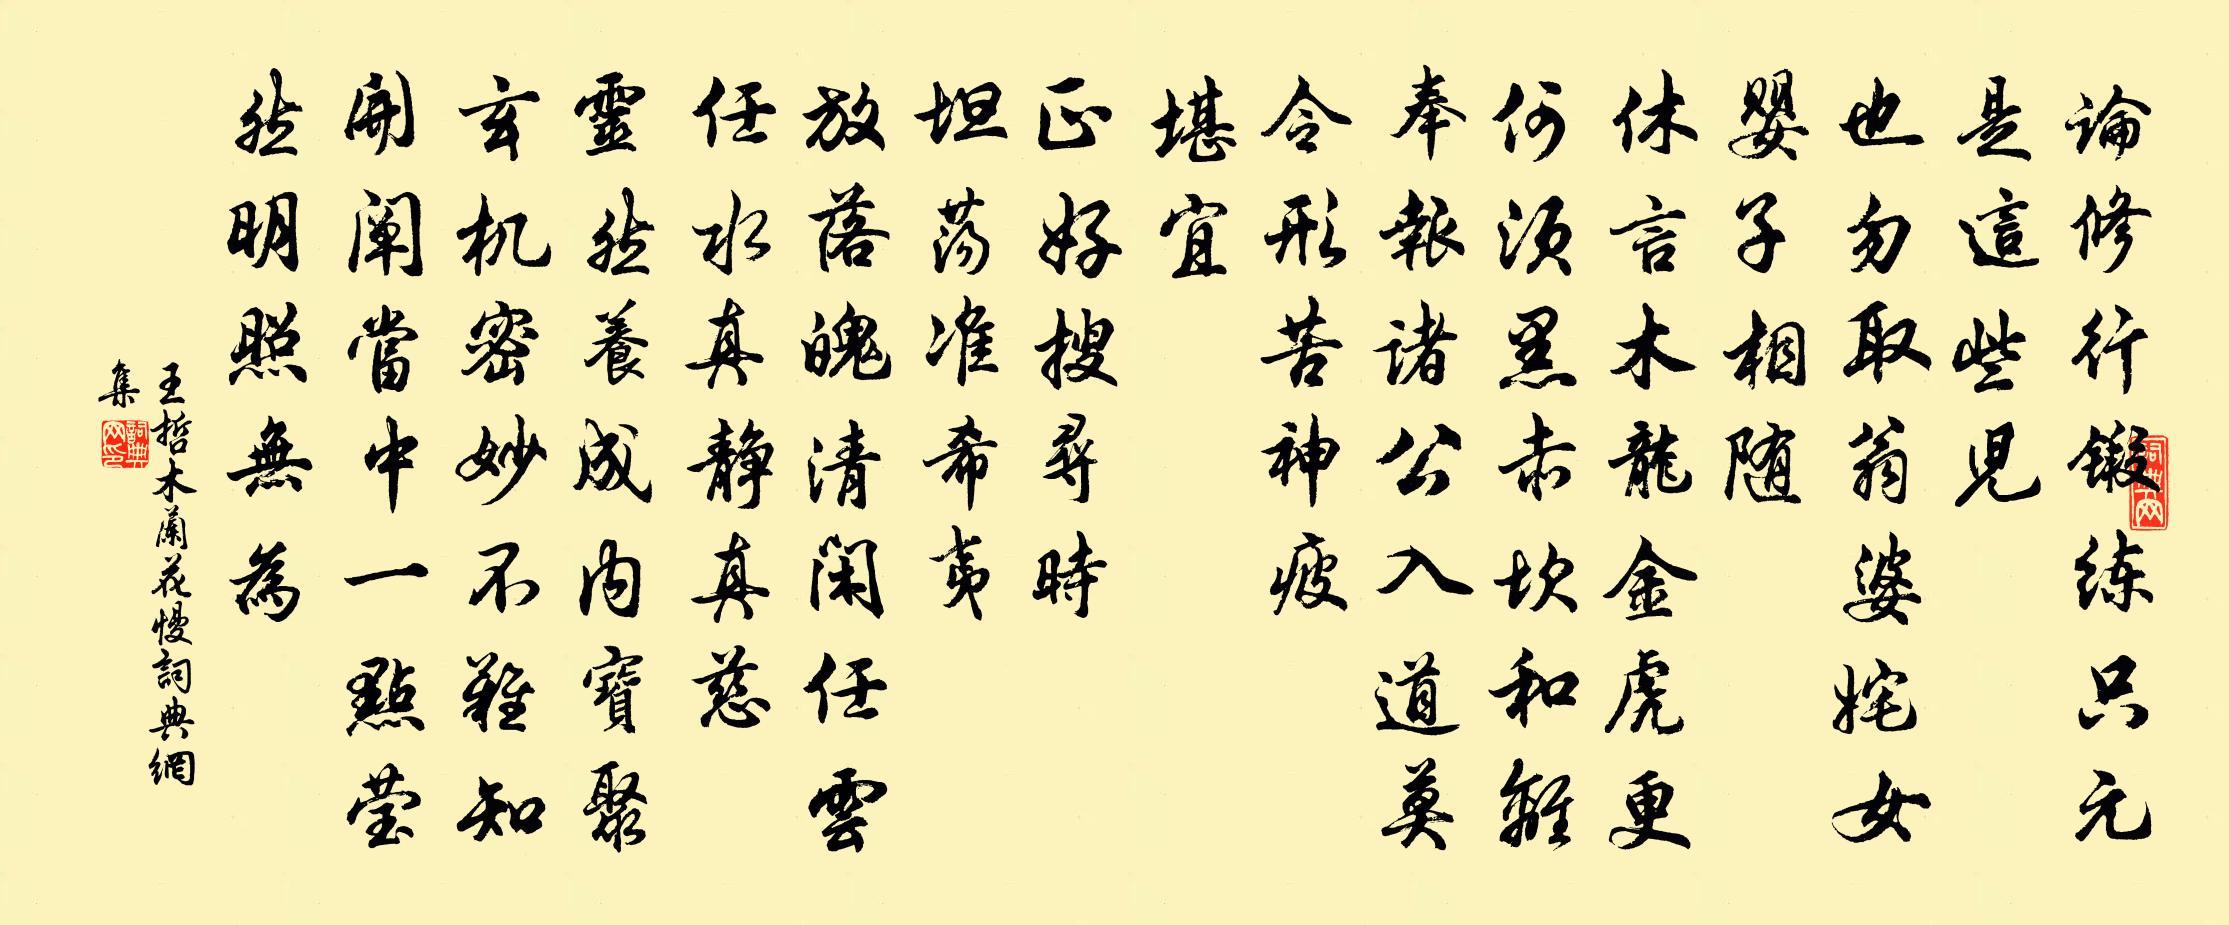 論修行鍛练只元
是這些児
也勿取翁婆姹女
嬰子相随
休言木龍金虎更
何須黑赤坎和離
奉報諸公入道莫
令形苦神疲
堪宜
正好搜尋時
坦荡准希夷
放落魄清閑任雲
任水真静真慈
靈然養成内寶聚
玄机密妙不難知
開阐當中一點莹
然明照無為
王哲木蘭花慢詞典網
集
詞典网
詞典网印